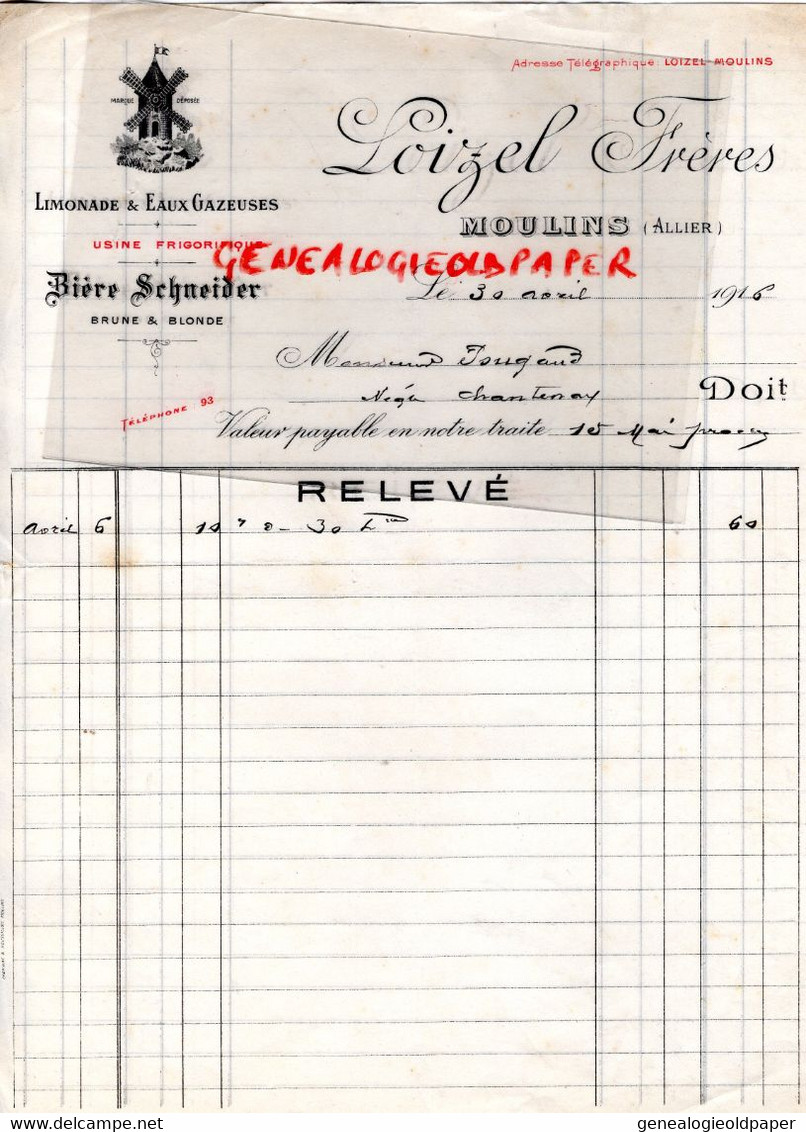 Adresse Télégraphique: LOIZEL-MOULINS
MARQUE DÉPOSÉE
Loizel Frères
LIMONADE & EAUX GAZEUSES
MOULINS (ALLIER)
USINE FRIGORIFIQUE
GENEALOGIEOLDPAPER
Bière Schneider
BRUNE & BLONDE
Le 30 avril 1916
Monsieur
Négt Chantenay Doit
TÉLÉPHONE 93
Valeur payable en notre traite 15 Mai
RELEVÉ
avril 6 30 60
genealogieoldpaper